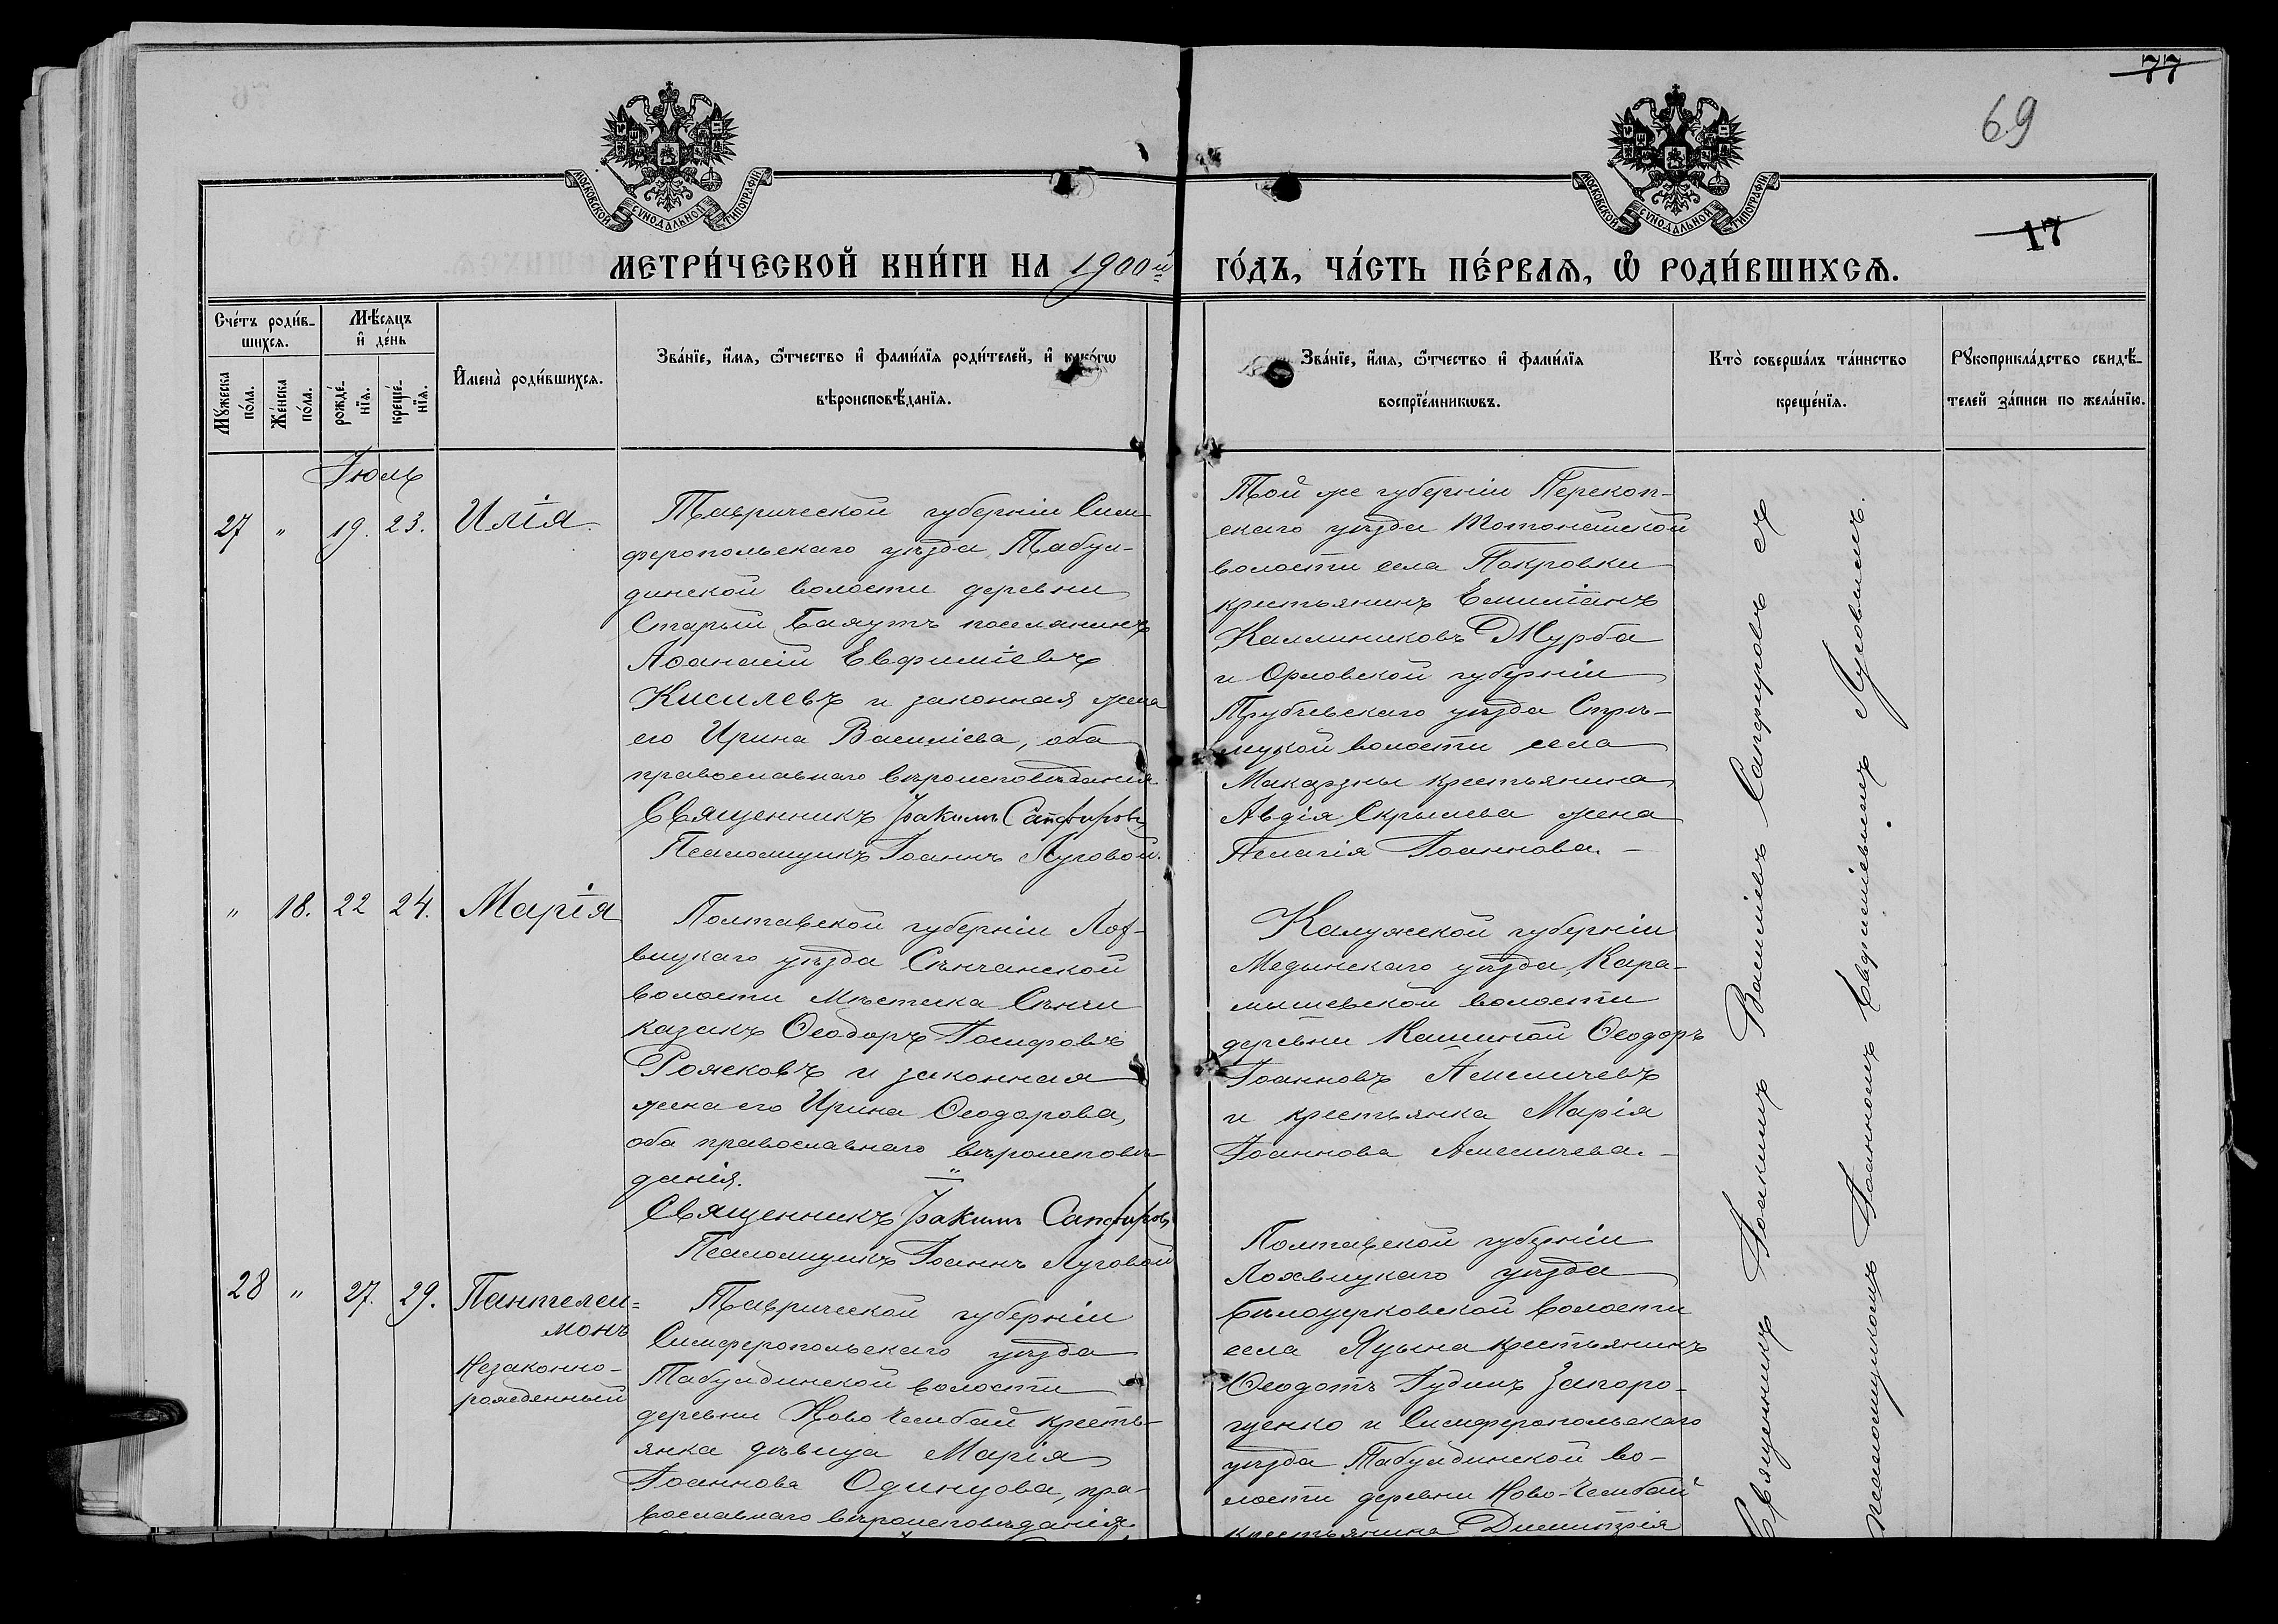 77
69
МОСКОВСКОЙ СѴНОДАЛЬНОЙ ТИПОГРАФІИ
МОСКОВСКОЙ СѴНОДАЛЬНОЙ ТИПОГРАФІИ
17
МЕТРИ́ЧЕСКОЙ КНИ́ГИ НА 1900й
ГО́ДЪ, ЧА́СТЬ ПЕ́РВАЯ, Ѽ РОДИ́ВШИХСѦ.
Сче́тъ роди́в-
шихсѧ.
Мꙋ́жеска
по́ла.
Же́нска
по́ла.
Мѣ́сѧцъ
и҆ де́нь
рожде́-
нїѧ.
креще́-
нїѧ.
И҆мена̀ роди́вшихсѧ.
Зва́нїе, и҆́мѧ, ѻ҆́тчество и҆ фами́лїѧ роди́телей, и҆ како́гѡ
вѣроисповѣ́данїѧ.
Зва́нїе, и҆́мѧ, ѻ҆́тчество и҆ фами́лїѧ
воспрїе́мникѡвъ.
Кто̀ соверша́лъ та́инство
креще́нїѧ.
Рꙋкоприкла́дство свидѣ́-
телей за́писи по жела́нїю.
Іюль
27 " 19. 23. Илія.
Таврической губерніи Сим
феропольскаго уѣзда, Табул-
динской волости деревни
Старый Баяутъ поселянинъ
Аѳанасій Евфиміевъ
Кисилевъ и законная жена
его Ирина Василіева, оба
православнаго вѣроисповѣданія
Священникъ Іоакимъ Сапфировъ
Псаломщикъ Іоаннъ Луговой.
Той же губерніи Перекоп-
скаго уѣзда Тотонайской
волости села Покровки
крестьянинъ Емиліанъ
Каллиниковъ Журба
и Орловской губерніи
Трубчевскаго уѣзда
волости села
крестьянина
Авдія жена
Пелагія Іоаннова.-
" 18. 22 24. Марія
Полтавской губерніи Лох-
вицкаго уѣзда Сѣнчанской
волости мѣстечка Сѣнчи
казакъ Ѳеодоръ Іосифовъ
Рожковъ и законная
жена его Ирина Ѳеодорова,
оба православнаго вѣроисповѣ-
данія.
Священникъ Іоакимъ Сапфировъ
Псаломщикъ Іоаннъ Луговой
Калужской губерніи
Медынскаго уѣзда, Кара-
мышевской волости
деревни Кашиной Ѳеодоръ
Іоанновъ Амеличевъ
и крестьянка Марія
Іоаннова Амеличева.-
28 " 27. 29. Пантелеи=
монъ
Незаконно-
рожденный
Таврической губерніи
Симферопольскаго уѣзда
Табулдинской волости
деревни Ново Чембай кресть-
янка дѣвица Марія
Іоаннова Одинцова, пра-
вославнаго вѣроисповѣданія.
Полтавской губерніи
Лохвицкаго уѣзда
Бѣлоцерковской волости
села Яцына крестьянинъ
Ѳеодотъ Іудинъ Запоро-
щенко и Симферопольскаго
уѣзда Табулдинской во-
лости деревни Ново-Чембай
крестьянина Димитрія
Священникъ Іоакимъ Василіевъ Сапфировъ съ
псаломщикомъ Іоанномъ Евфиміевымъ Луговымъ.